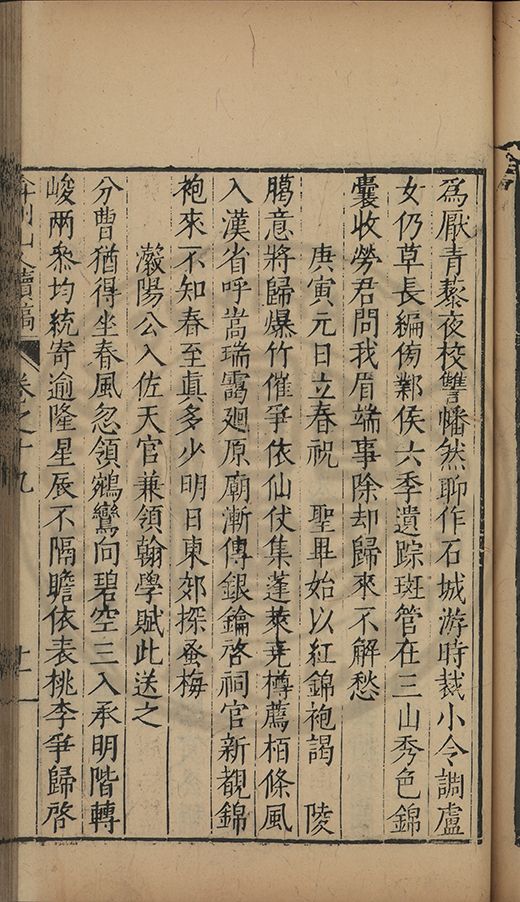 為厭青藜夜校讐幡然聊作石城游時裁小令調盧
女仍草長編傍鄴侯六季遺踪斑管在三山秀色錦
囊收勞君問我眉端事除却歸來不解愁
庚寅元日立春祝 聖畢始以紅錦袍謁 陵
臈意將歸爆竹催爭依仙仗集蓬萊堯樽薦栢條風
入漢省呼嵩瑞靄廻原廟漸傳銀鑰啓祠官新覩錦
袍來不知春至眞多少明日東郊探蚤梅
瀔陽公入佐天官兼領翰學賦此送之
分曹猶得坐春風忽領鵷鸞向碧空三入承明階轉
峻兩叅均統寄逾隆星辰不隔瞻依表桃李爭歸啓
弇州山人續稿 卷之十九 十一